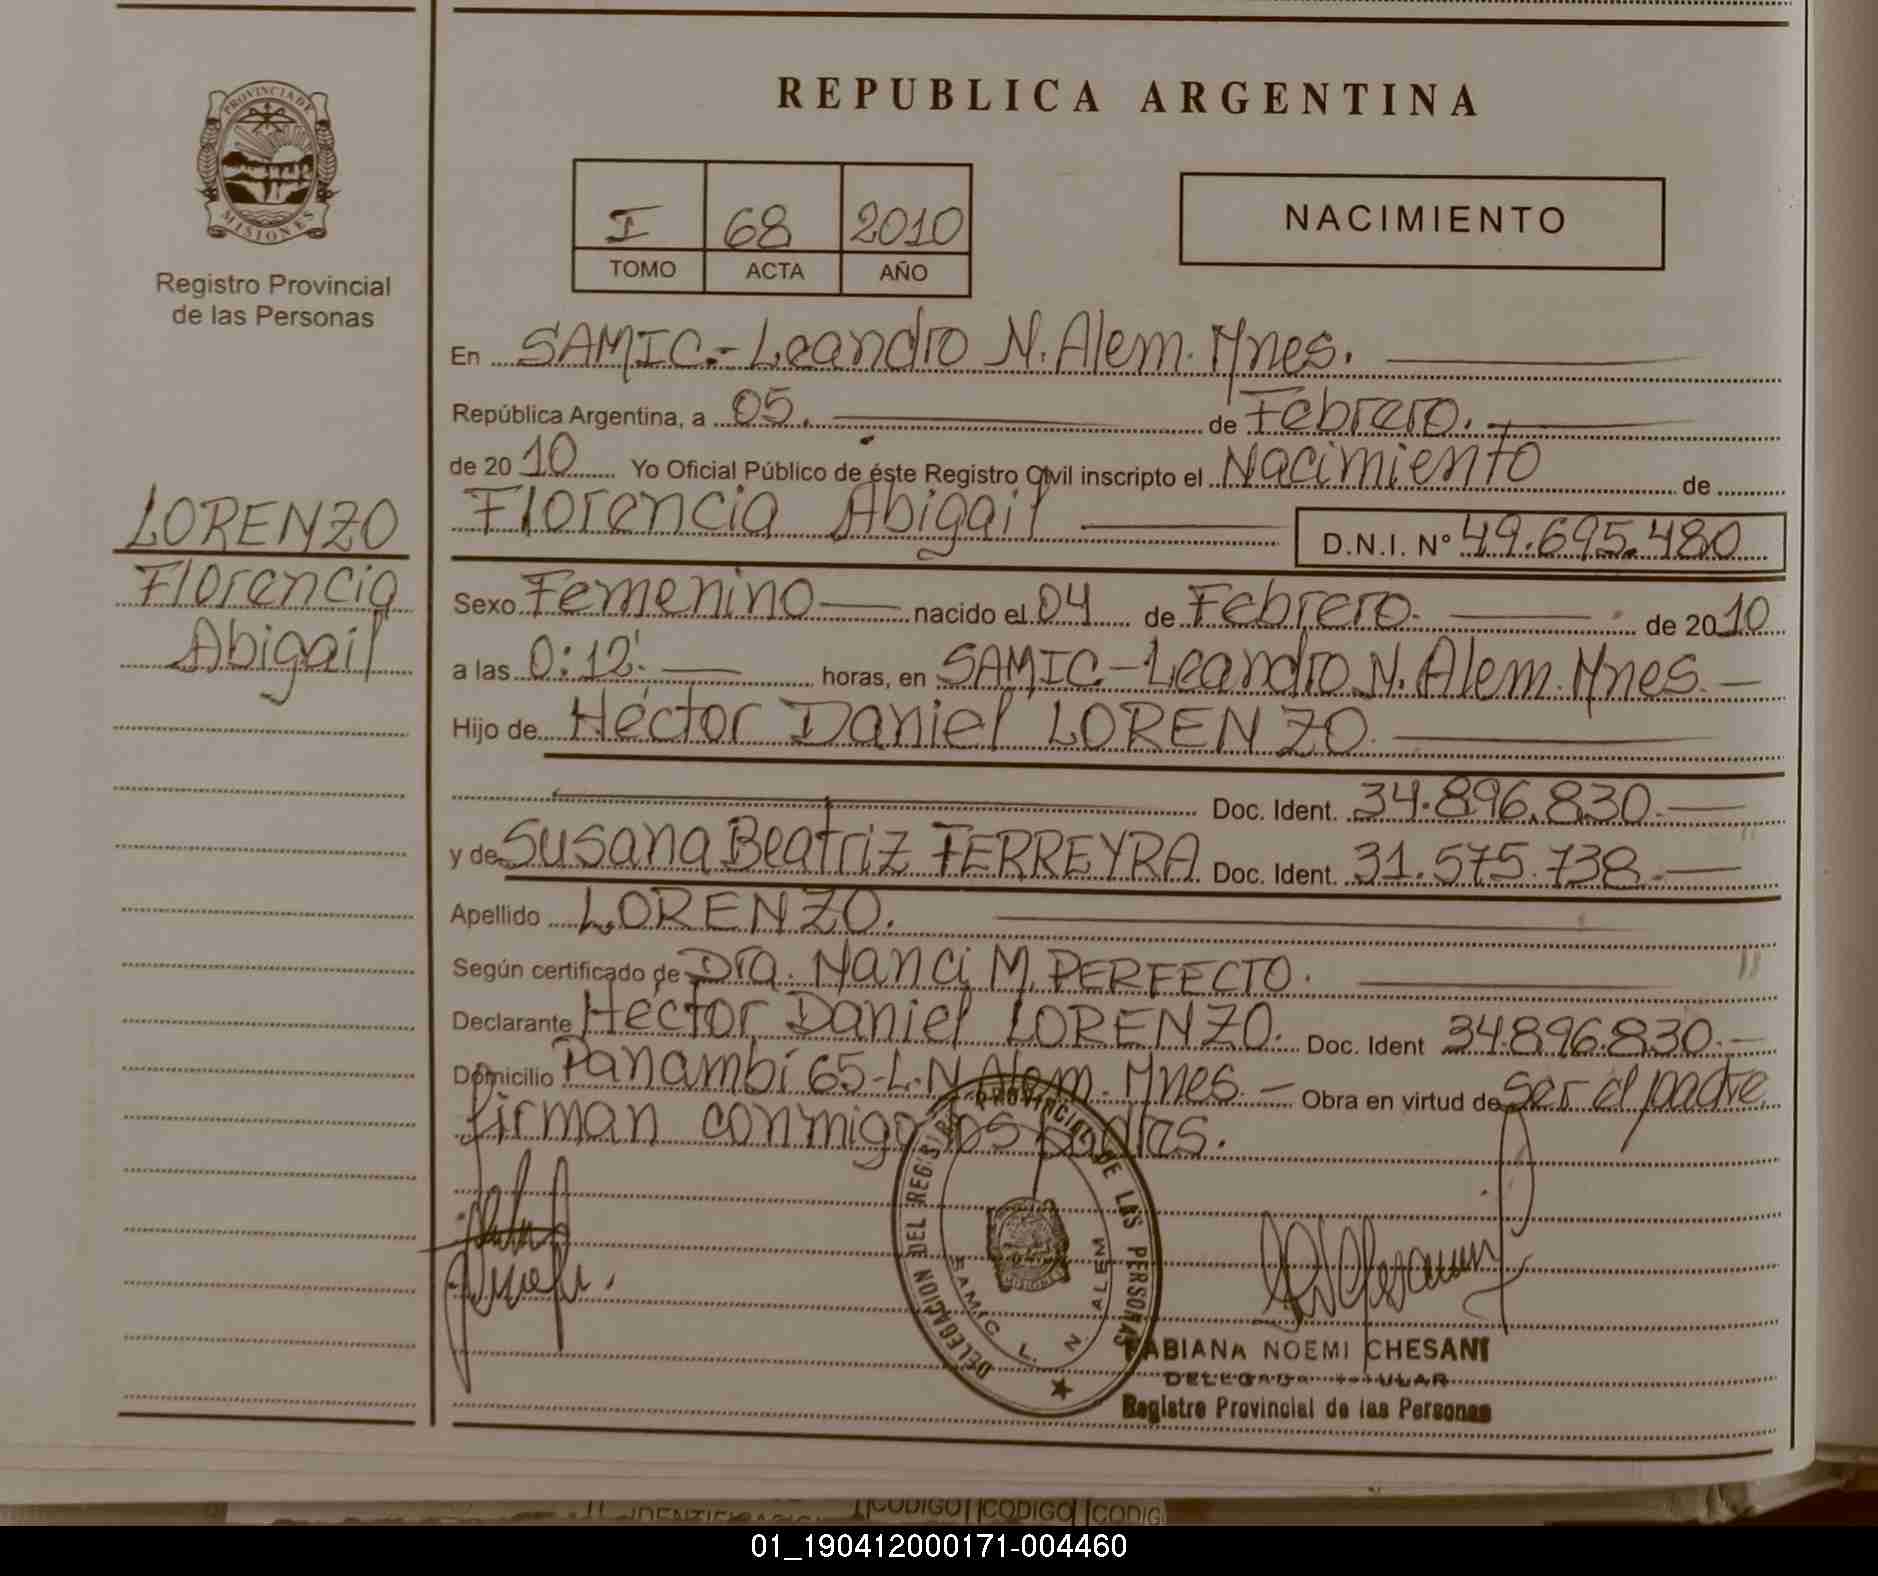 REPUBLICA ARGENTINA
PROVINCIA DE
MISIONES
Registro Provincial
de las Personas
I 68 2010
TOMO ACTA AÑO
NACIMIENTO
En SAMIC.-Leandro N. Alem. Mnes.
República Argentina, a 05. de Febrero.
de 2010 Yo Oficial Público de éste Registro Civil inscripto el Nacimiento de
Florencia Abigail D.N.I. Nº 49.695.480
LORENZO
Florencia
Abigail
Sexo Femenino nacido el 04 de Febrero. de 2010
a las 0:12'. horas, en SAMIC-Leandro N. Alem. Mnes.
Hijo de Héctor Daniel LORENZO.
Doc. Ident. 34.896.830.
y de Susana Beatriz FERREYRA Doc. Ident. 31.575.738.
Apellido LORENZO.
Según certificado de Dra. Nanci M. PERFECTO.
Declarante Héctor Daniel LORENZO. Doc. Ident 34.896.830.
Domicilio Panambí 65-L.N. Alem. Mnes. Obra en virtud de ser el padre
firman conmigo los padres.
DELEGACION DEL REGISTRO PROVINCIAL DE LAS PERSONAS
SAMIC L. N. ALEM
FABIANA NOEMI CHESANI
DELEGADA TITULAR
Registro Provincial de las Personas
CODIGO CODIGO CODIG
01_190412000171-004460